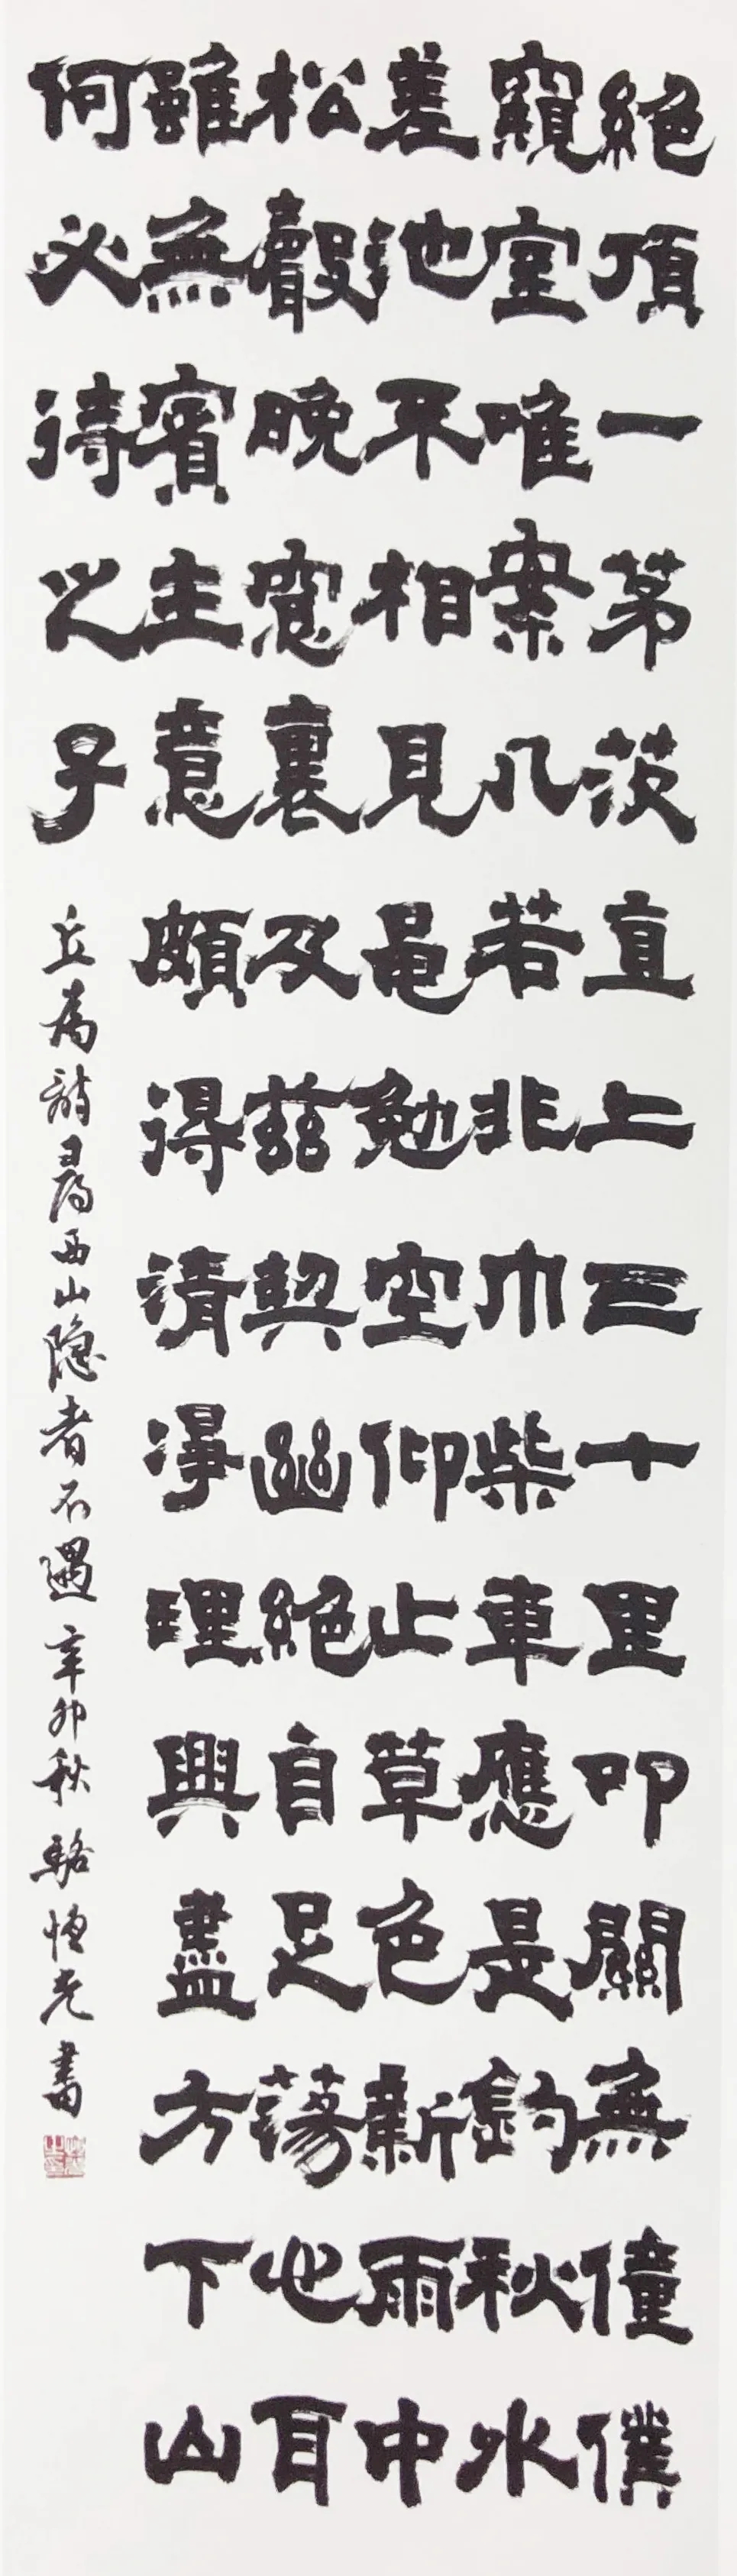 絕頂一茅茨直上三十里叩關無僮僕
窺室唯案几若非巾柴車應是釣秋水
差池不相見黽勉空仰止草色新雨中
松聲晚窓裏及茲契幽絕自足蕩心耳
雖無賓主意頗得清淨理興盡方下山
何必待之子 丘為詩尋西山隐者不遇 辛卯秋 駱恒光書